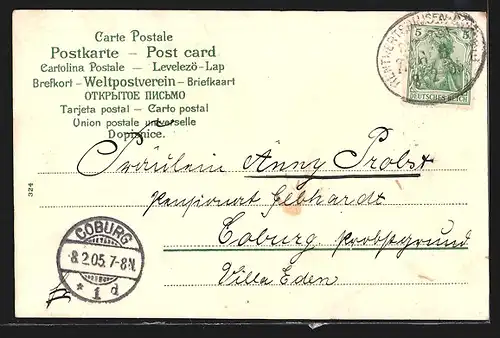 Carte Postale
Postkarte – Post card
Cartolina Postale – Levelezö-Lap
Brefkort – Weltpostverein – Briefkaart
ОТКРЫТОЕ ПИСЬМО
Tarjeta postal – Carto postal
Union postale universelle
Dopisnice.
5 5
DEUTSCHES REICH
Fräulein Anny Probst
Pensionat Gebhardt
Coburg Probstgrund
Villa Eden
324
COBURG
8.2.05. 7-8N.
* 1 d